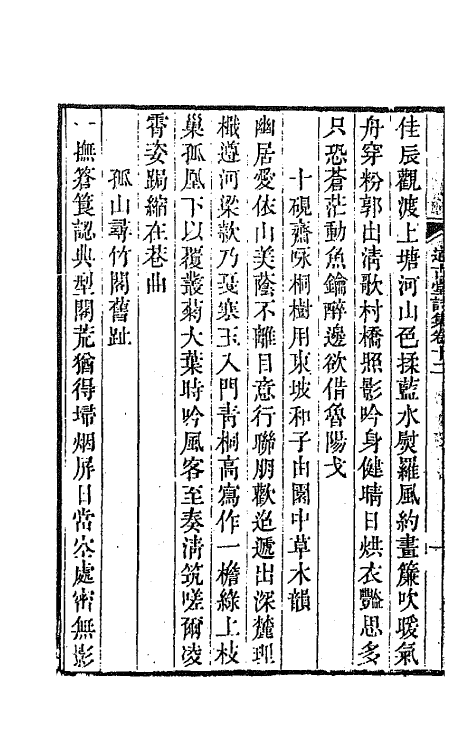 佳辰觀渡上塘河山色揉藍水熨羅風約畫簾吹暖氣
舟穿粉郭出清歌村橋照影吟身健晴日烘衣豔思多
只恐蒼茫動魚鑰醉邊欲借魯陽戈
十硯齋咏桐樹用東坡和子由園中草木韻
幽居愛依山美蔭不離目意行聯朋歡迤遞出深麓理
檝遵河梁欵乃戛寒玉入門靑桐高寫作一檐綠上枝
巢孤凰下以覆叢菊大葉時吟風客至奏淸筑嗟爾凌
霄姿跼縮在巷曲
孤山尋竹閣舊趾
一撫蒼筤認典型闢荒猶得埽烟屏日當空處密無影
道古堂詩集卷十二